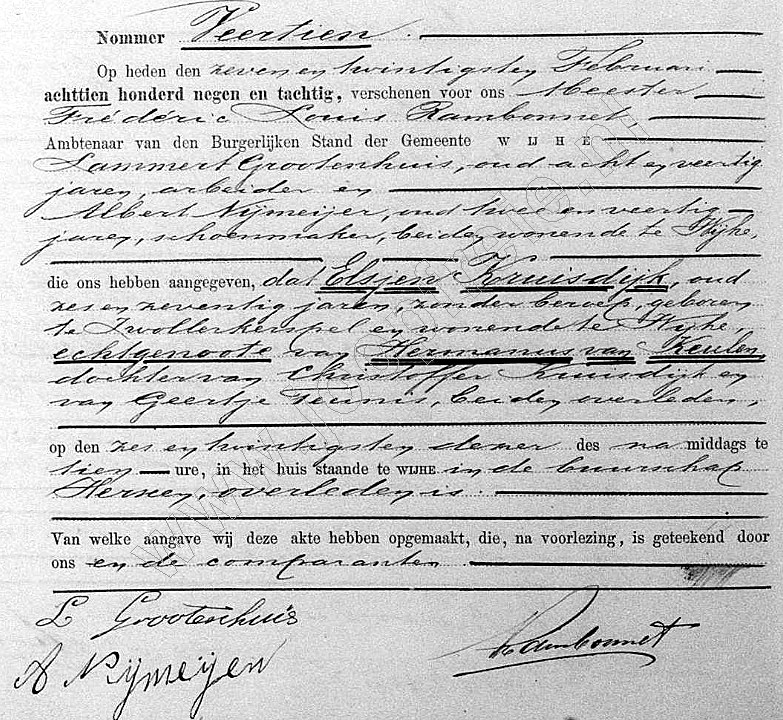 Nommer Veertien.
Op heden den zeven en twintigsten Februari
achttien honderd negen en tachtig, verschenen voor ons Meester
Frédéric Louis Rambonnet
Ambtenaar van den Burgerlijken Stand der Gemeente WIJHE
Lammert Grootenhuis, oud acht en veertig
jaren, arbeider en
Albert Nijmeijer, oud twee en veertig
jaren, schoenmaker, beiden wonende te Wijhe,
die ons hebben aangegeven, dat Elsjen Kruisdijk, oud
zes en zeventig jaren, zonder beroep, geboren
te Zwollerkerspel en wonende te Wijhe,
echtgenoote van Hermannus van Keulen,
dochter van Christoffer Kruisdijk en
van Geertje Teunis, beiden overleden,
op den zes en twintigsten dezer des na middags te
tien ure, in het huis staande te WIJHE in de buurschap
Herxen, overleden is.
Van welke aangave wij deze akte hebben opgemaakt, die, na voorlezing, is geteekend door
ons en de comparanten.
L Grootenhuis
Rambonnet
A Nijmeijer